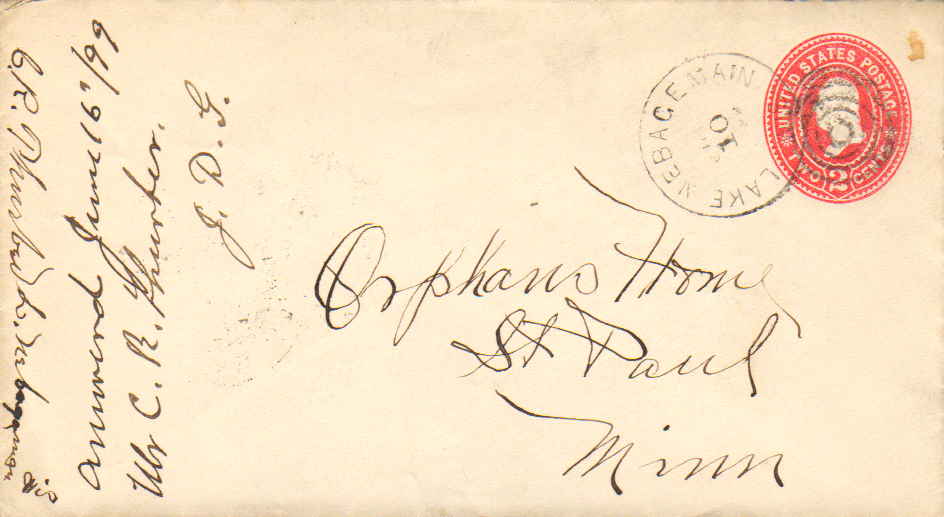 UNITED STATES POSTAGE
TWO 2 CENTS
LAKE NEBAGEMAIN
10
Orphans Home
St Paul
Minn
C.R. Thurber L. Nebagamon
Answered June 16"/99
Mr C. R. Thurber.
J. D. G.